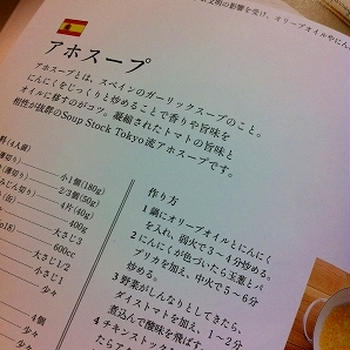 文明の影響を受け、オリーブオイルやにん
アホスープ
アホスープとは、スペインのガーリックスープのこと。
にんにくをじっくりと炒めることで香りや旨味を
オイルに移すのがコツ。凝縮されたトマトの旨味と
相性が抜群のSoup Stock Tokyo流アホスープです。
料(4人前)
薄切り)……小1個(180g)
(薄切り)……2/3個(50g)
みじん切り)……4片(40g)
(缶)……400g
o18)……大さじ3
600cc
大さじ1/2
小さじ1
少々
4個
少々
少々
作り方
1 鍋にオリーブオイルとにんにく
を入れ、弱火で3〜4分炒める。
2 にんにくが色づいたら玉葱とパ
プリカを加え、中火で5〜6分
炒める。
3 野菜がしんなりとしてきたら、
ダイストマトを加え、1〜2分
煮込んで酸味を飛ばす。
4 チキンストックを